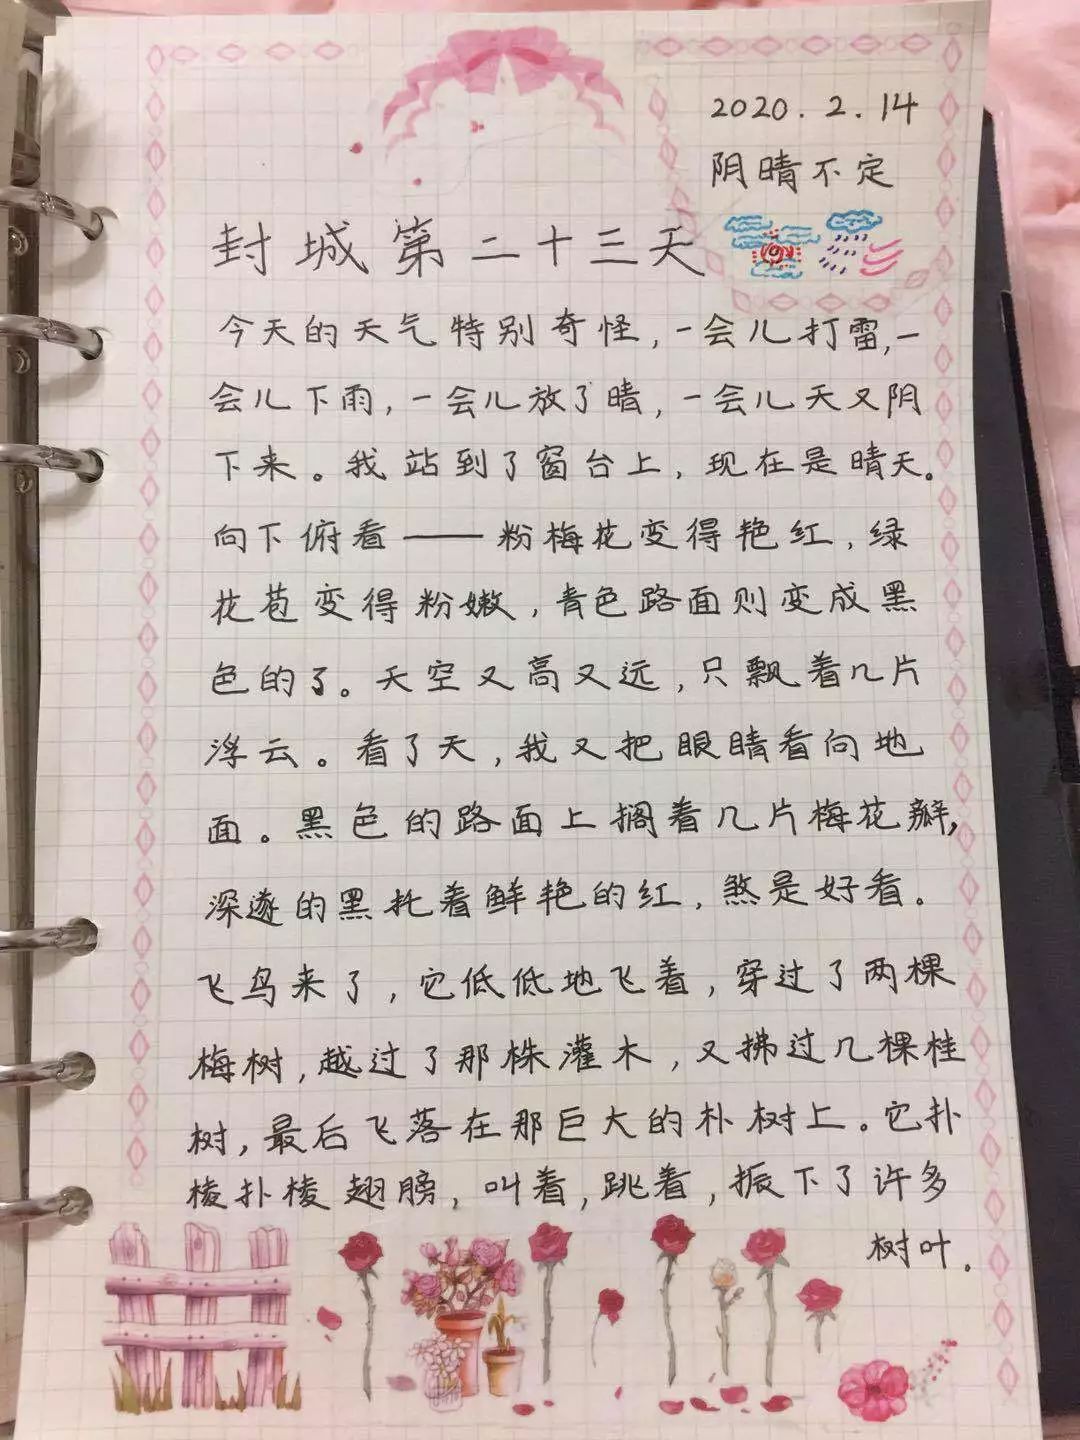 2020.2.14
阴晴不定
封城第二十三天
今天的天气特别奇怪,一会儿打雷,一
会儿下雨,一会儿放了晴,一会儿天又阴
下来。我站到了窗台上,现在是晴天。
向下俯看——粉梅花变得艳红,绿
花苞变得粉嫩,青色路面则变成黑
色的了。天空又高又远,只飘着几片
浮云。看了天,我又把眼睛看向地
面。黑色的路面上搁着几片梅花瓣,
深邃的黑托着鲜艳的红,煞是好看。
飞鸟来了,它低低地飞着,穿过了两棵
梅树,越过了那株灌木,又拂过几棵桂
树,最后飞落在那巨大的朴树上。它扑
棱扑棱翅膀,叫着,跳着,振下了许多
树叶。